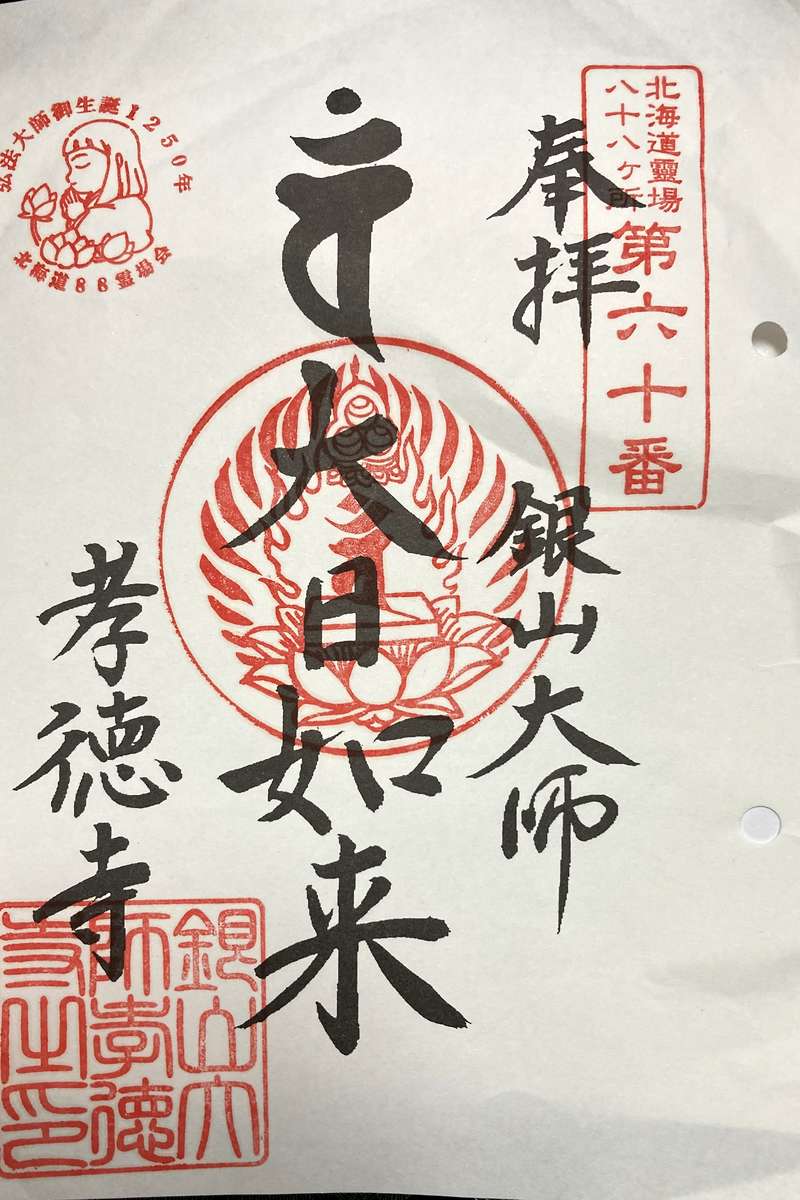 北海道霊場
八十八ヶ所
第六十番
奉拝
銀山大師
大日如来
孝徳寺
弘法大師御生誕1250年
北海道88霊場会
銀山大
師孝徳
寺之印